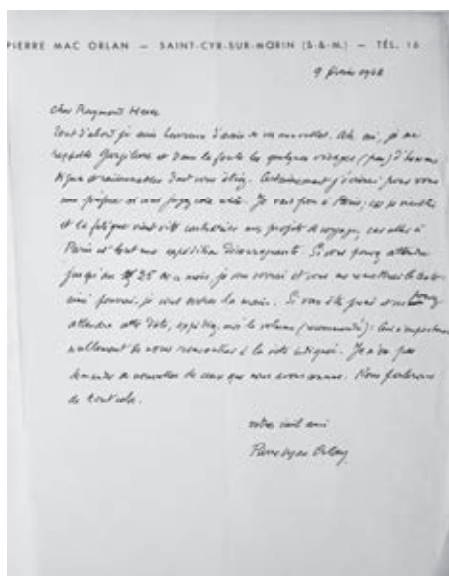 PIERRE MAC ORLAN — SAINT-CYR-SUR-MORIN (S.-&-M.) — TÉL. 16
9 février
Cher Raymond
Tout d'abord je suis heureux d'avoir de vos nouvelles. Ah oui, je me
rappelle et dans la foule les quelques visages (peu) d'hommes
dignes et raisonnables dont vous étiez. Certainement j'écrirai pour vous
une préface si vous jugez cela utile. Je vais peu à Paris; car je vieillis
et la fatigue vient vite mes projets de voyage, car aller à
Paris est tout une expédition décourageante. Si vous pouvez attendre
jusqu'au 25 de ce mois, je vous verrai et vous me remettrez le
ainsi pourrai-je vous serrer la main. Si vous êtes pressé et ne pouvez
attendre cette date, expédiez-moi le volume (recommandé): cela n'empêchera
nullement de nous rencontrer à la date indiquée. Je n'ai pas
demandé de nouvelles de ceux que nous avons connus. Nous parlerons
de tout cela.
votre vieil ami
Pierre Mac Orlan